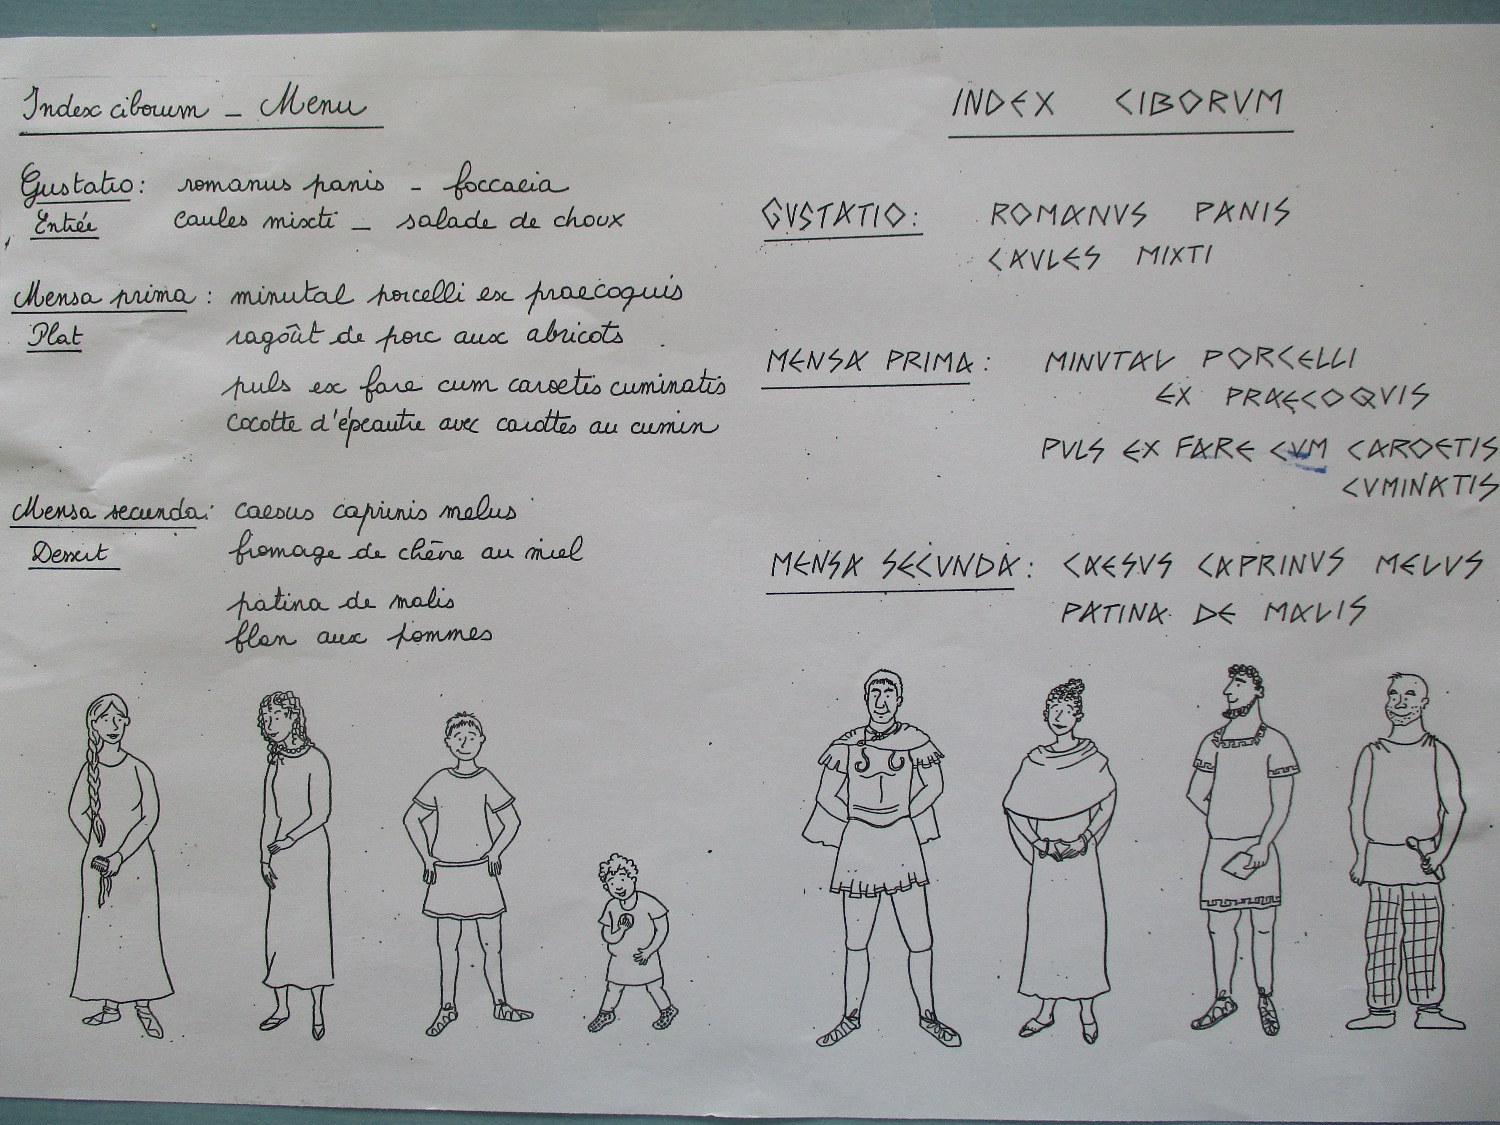 Index ciborum - Menu
Gustatio : romanus panis - foccacia
Entrée caules mixti - salade de choux
Mensa prima : minutal porcelli ex praecoquis
Plat ragoût de porc aux abricots
puls ex fare cum caroetis cuminatis
cocotte d'épeautre avec carottes au cumin
Mensa secunda : caesus caprinis melus
Dessert fromage de chèvre au miel
patina de malis
flan aux pommes
INDEX CIBORVM
GVSTATIO : ROMANVS PANIS
CAVLES MIXTI
MENSA PRIMA : MINVTAL PORCELLI
EX PRAECOQVIS
PVLS EX FARE CVM CAROETIS
CVMINATIS
MENSA SECVNDA : CAESVS CAPRINVS MELVS
PATINA DE MALIS